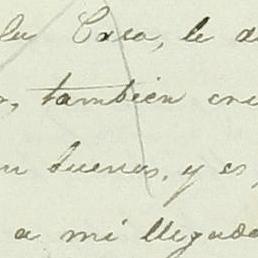 la Casa, le
también
buenas, y es
a mi llegada